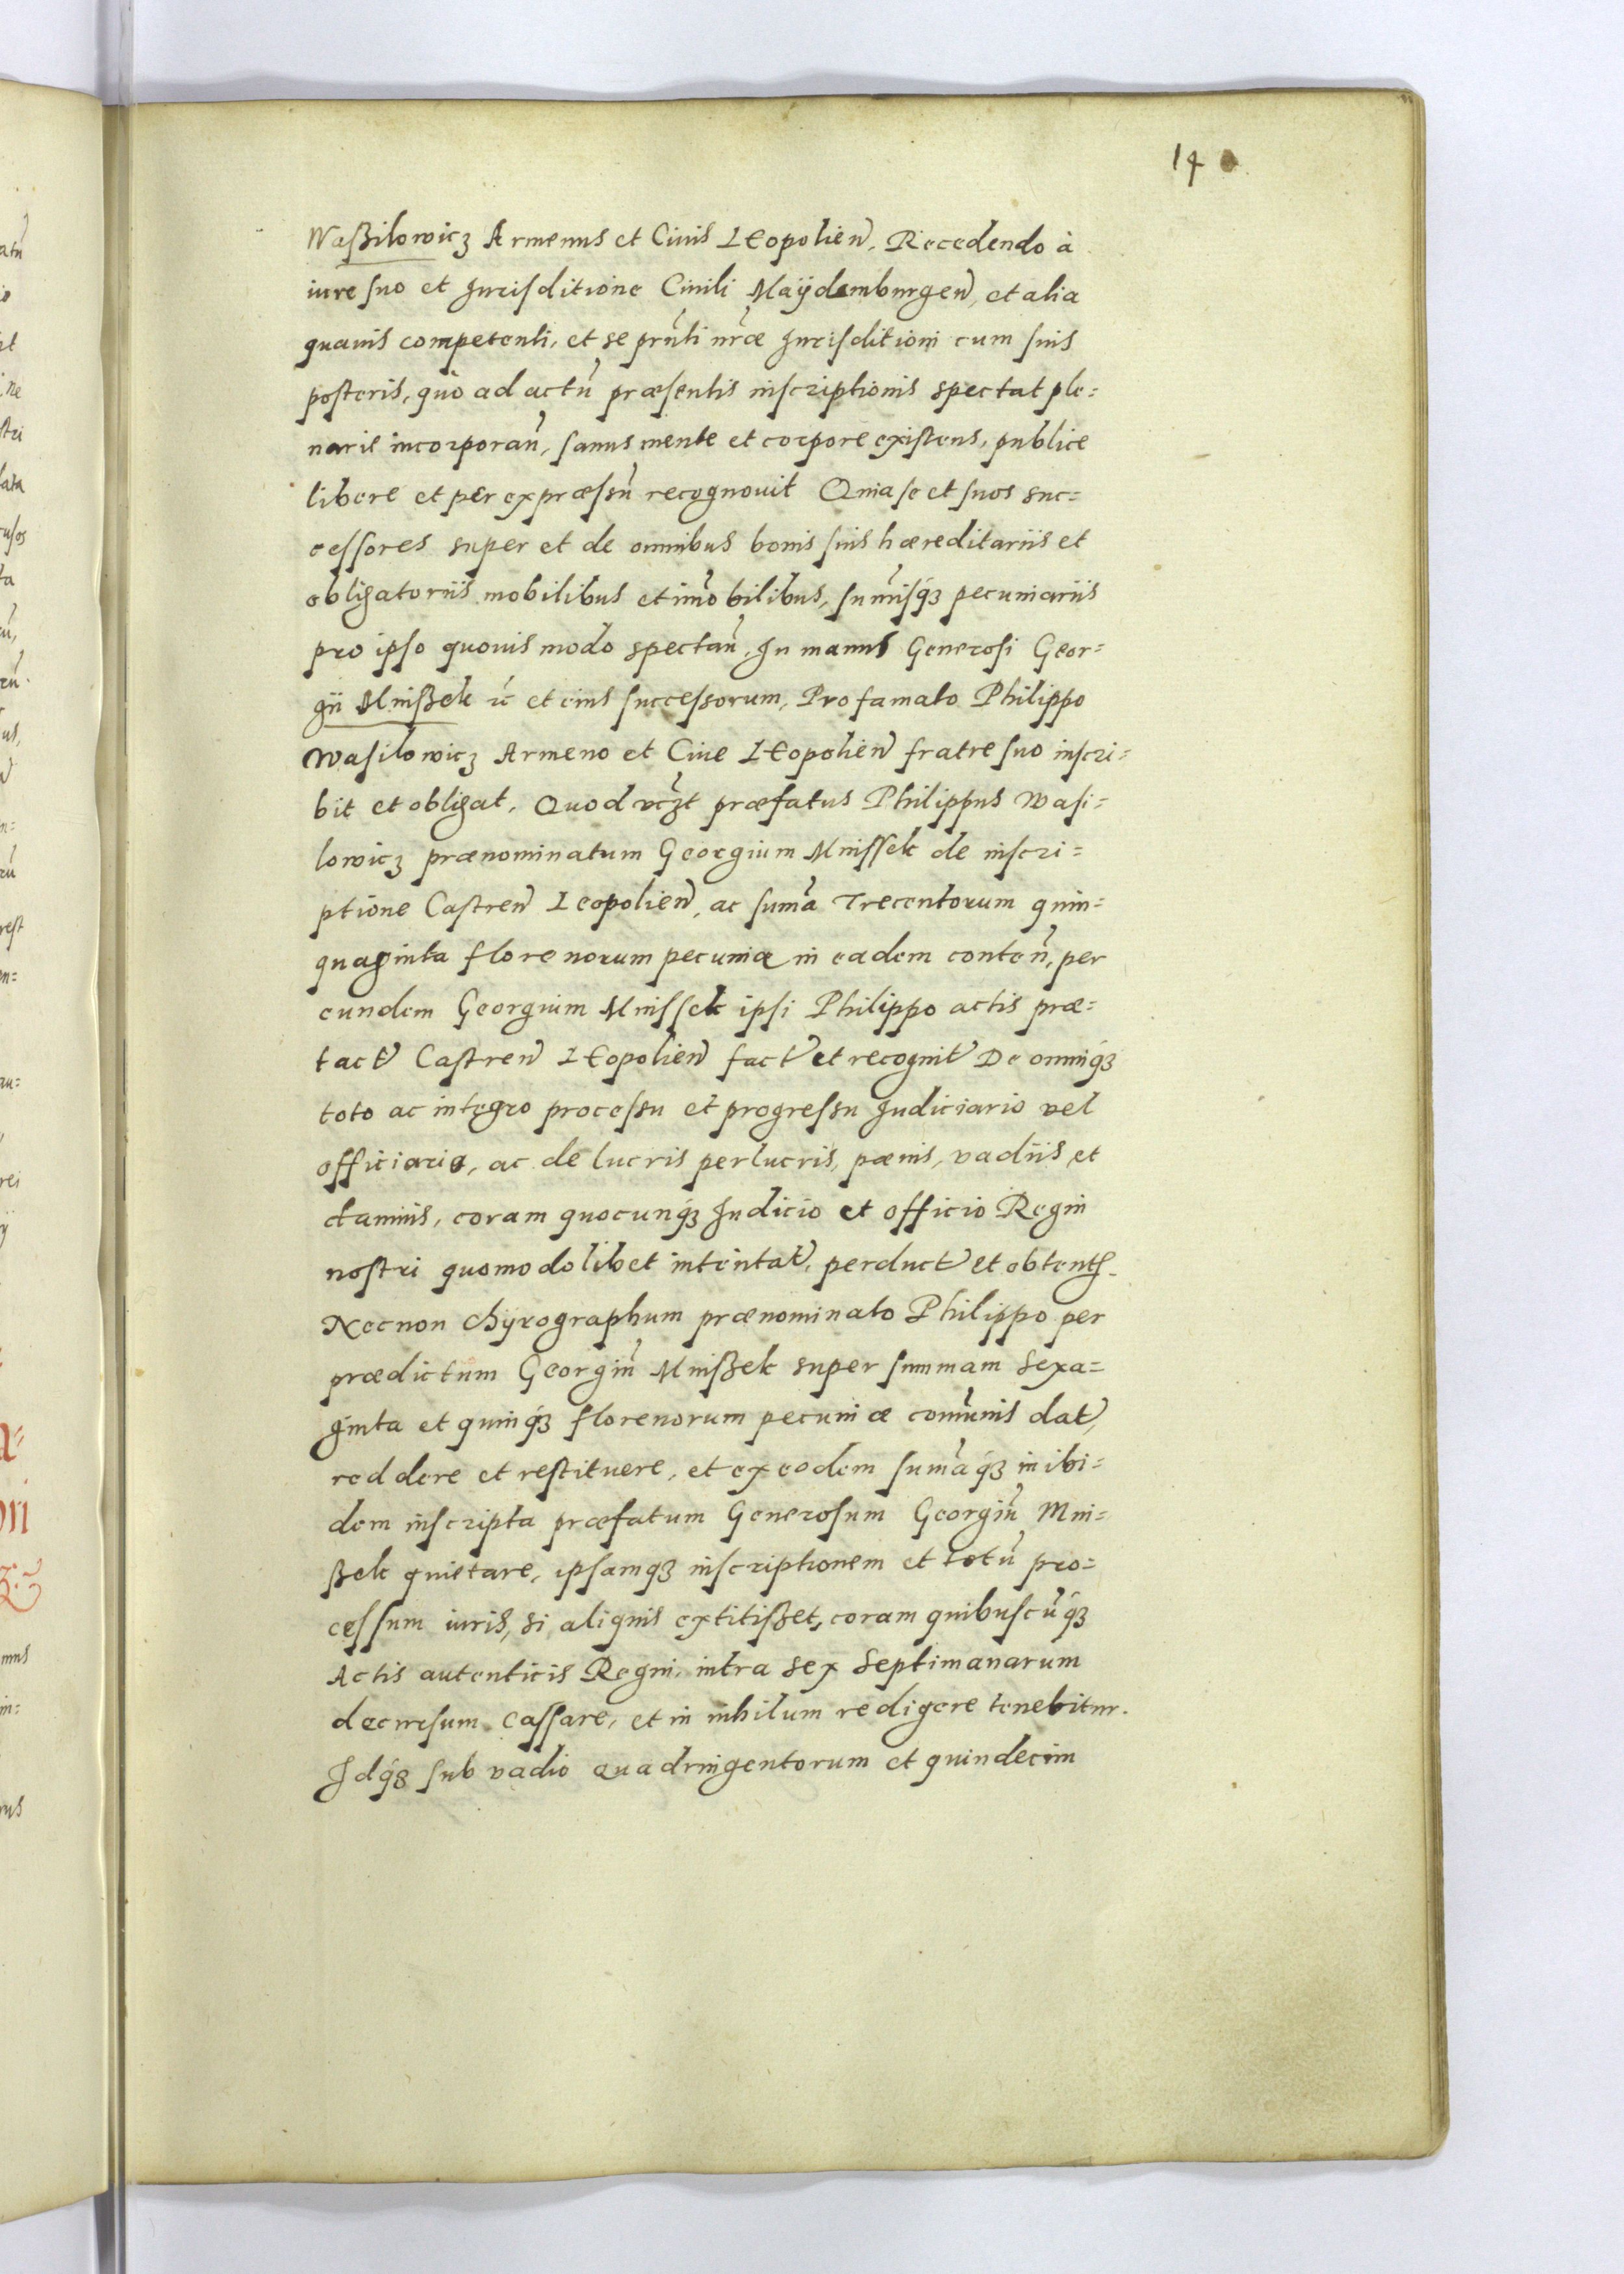 14
Waßilowicz Armenus et Ciuis Leopolien̄, Recedendo à
iure suo et Jurisditione Ciuili Maÿdemburgen̄, et alia
quauis competenti, et se prn̄ti nr̄æ Jurisditioni cum suis
posteris, quo ad actū præsentis inscriptionis spectat ple=
narie incorporan̄, sanus mente et corpore existens, publice
libere et per expræssū recognouit Quia se et suos suc=
cessores super et de omnibus bonis suis hæreditariis et
obligatoriis mobilibus et im̄obilibus, sum̄isq́ꝫ pecuniariis
pro ipso quouis modo spectan̄. In manus Generosi Geor=
gii Mnißek et eius successorum, Pro famato Philippo
Wasilowicz Armeno et Ciue Leopolien̄ fratre suo inscri=
bit et obligat, Quod vcꝫt præfatus Philippus Wasi=
lowicz prænominatum Georgium Mnissek de inscri=
ptione Castren̄ Leopolien̄, ac sum̄a Trecentorum quin=
quaginta florenorum pecuniæ in eadem conten̄, per
eundem Georgium Mnissek ipsi Philippo actis præ=
tact̄ Castren̄ Leopolien̄ fact̄ et recognit̄ De omniq́ꝫ
toto ac integro processu et progressu Judiciario vel
officiario, ac de lucris perlucris, pænis, vadiis et
ctaminis, coram quocunq́ꝫ Judicio et officio Regni
nostri quomodolibet intentat̄, perduct̄ et obtent̄.
Necnon chÿrographum prænominato Philippo per
prædictum Georgiū Mnißek super summam Sexa=
ginta et quinq́ꝫ florenorum pecuniæ com̄unis dat̄,
reddere et restituere, et ex eodem sum̄aq́ꝫ inibi=
dem inscripta præfatum Generosum Georgiū Mni=
ßek quietare, ipsamqꝫ inscriptionem et totū pro=
cessum iuris, si aliquis extitißet, coram quibuscūq́ꝫ
Actis autenticis Regni, intra Sex Septimanarum
decursum Cassare, et in nihilum redigere tenebitur.
Idq́ꝫ sub vadio Quadringentorum et quindecim